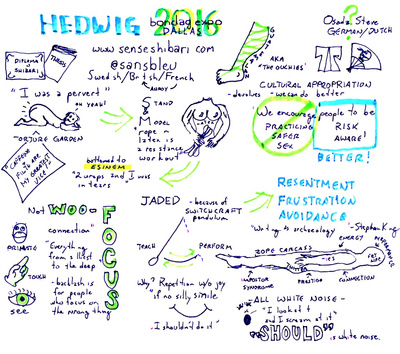 HEDWIG 2016
bondage expo
DALLAS
www.senseshibari.com
@sansbleu
Swedish/British/French
Osada Steve
GERMAN/DUTCH
?
DIPLOMA
SHIBARI
THESIS
"I was a pervert"
OH YEAH!
"TORTURE GARDEN
CAFFEINE
PILLS ARE
MY GREATEST
VICE!"
bottomed to
ESINEM
"2 wraps and I was
in tears
STAND
MODEL
rope +
latex is
a resistance
workout
AKA
"THE OUCHIES"
CULTURAL APPROPRIATION
- derobes - we can do better
We encourage
PRACTICING
SAFER
SEX
people to be
RISK
AWARE!
BETTER!
RESENTMENT
FRUSTRATION
AVOIDANCE
"Writing is archeology"
- Stephen King
Not WOO-
FOCUS
connection"
PRIMATE
TOUCH
see
"Everything
from a list
to the deep
- backlash is
for people
who focus on
the wrong thing
JADED
- because of
SWITCHCRAFT
pendulum
TEACH
PERFORM
Why? Repetition w/o joy
if no silly smile
"I shouldn't do it"
ROPE CARCASS
ENERGY
PERFORMANCE
IMPOSTOR
SYNDROME
PRACTICE
CONNECTION
ALL WHITE NOISE -
"I looked +
and I scream at it"
"SHOULD"
is white noise.